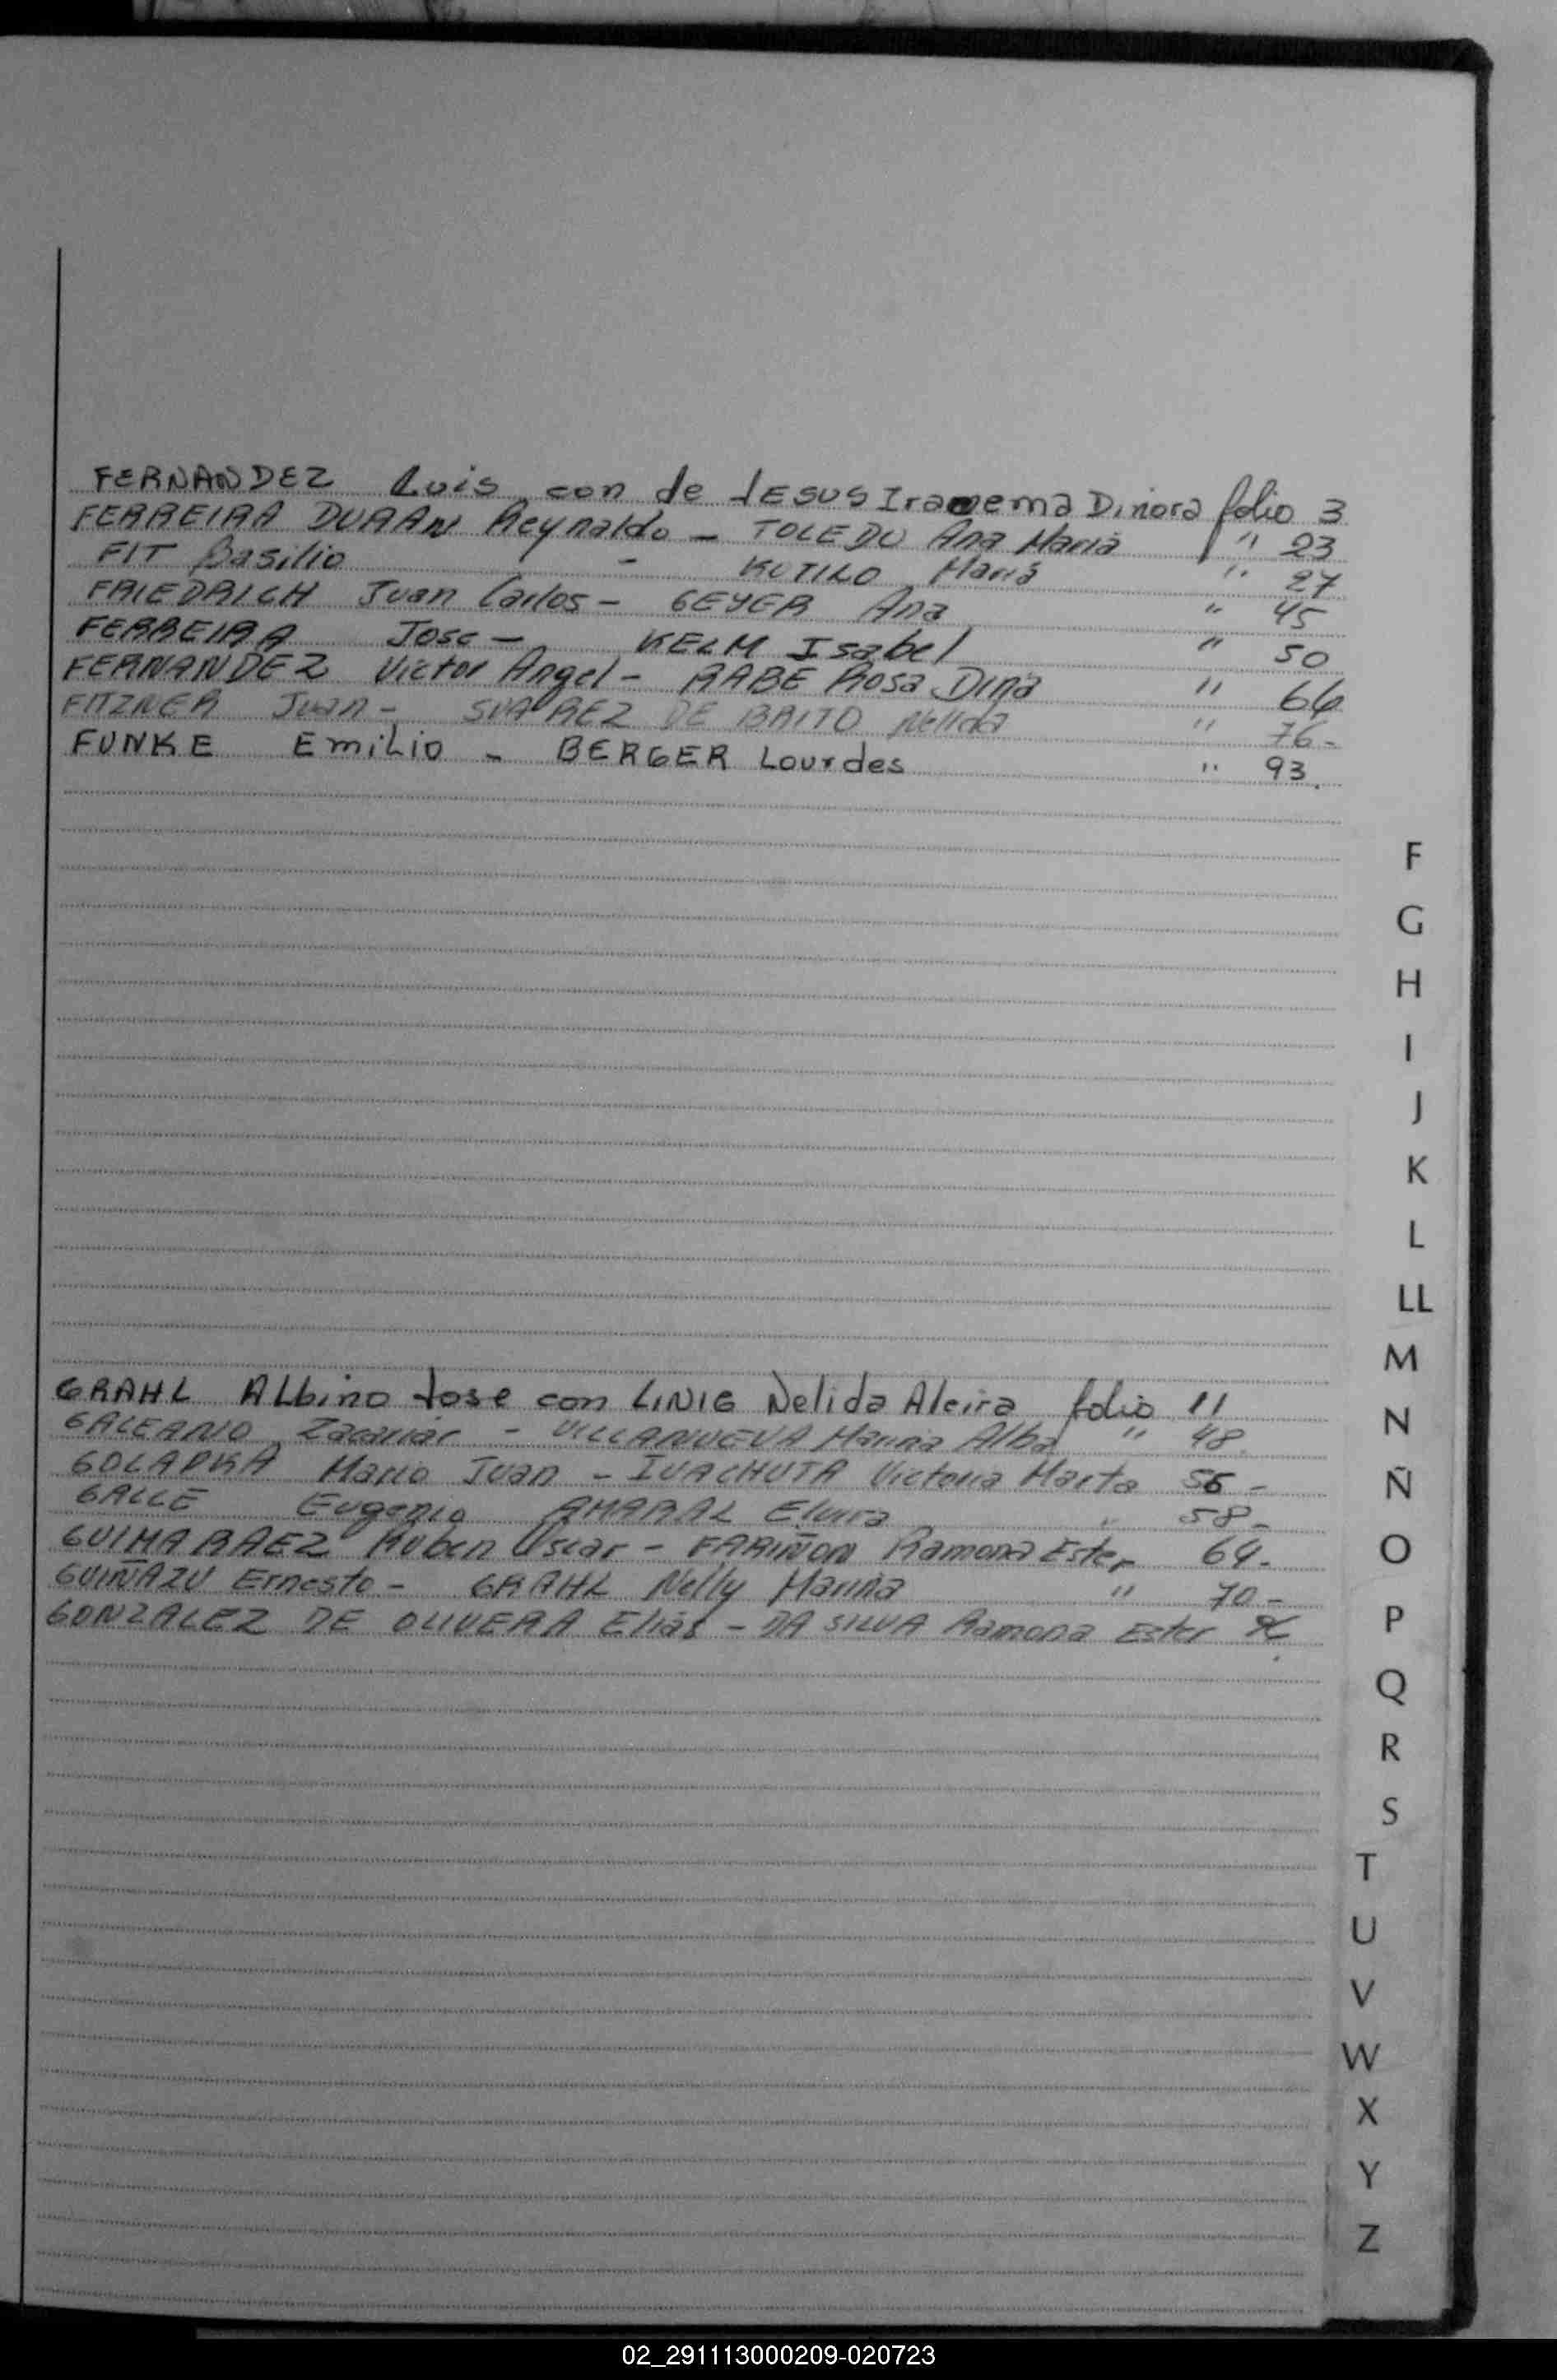 FERNANDEZ Luis con de JESUS Iracema Dinora folio 3
FERREIRA DURAN Reynaldo - TOLEDO Ana Maria " 23
FIT Basilio - KOTILO Maria " 27
FRIEDRICH Juan Carlos - GEYER Ana " 45
FERREIRA Jose - KELM Isabel " 50
FERNANDEZ Victor Angel - RABE Rosa Dina " 66
FITZNER Juan - SUAREZ DE BRITO Nelida " 76-
FUNKE Emilio - BERGER Lourdes " 93.
F
G
H
I
J
K
L
LL
M
N
Ñ
O
P
Q
R
S
T
U
V
W
X
Y
Z
GRAHL Albino Jose con LINIG Nelida Alcira folio 11
GALEANO Zacarias - VILLANUEVA Marina Alba " 48
Mario Juan - IVACHUTA Victoria Marta 56 -
GALLE Eugenio AMARAL Elvira " 58-
GUIMARAEZ Ruben Oscar - FARIÑON Ramona Ester 64-
GUIÑAZU Ernesto - GRAHL Nelly Marina " 70-
GONZALEZ DE OLIVERA Elias - DA SILVA Ramona Ester
02_291113000209-020723